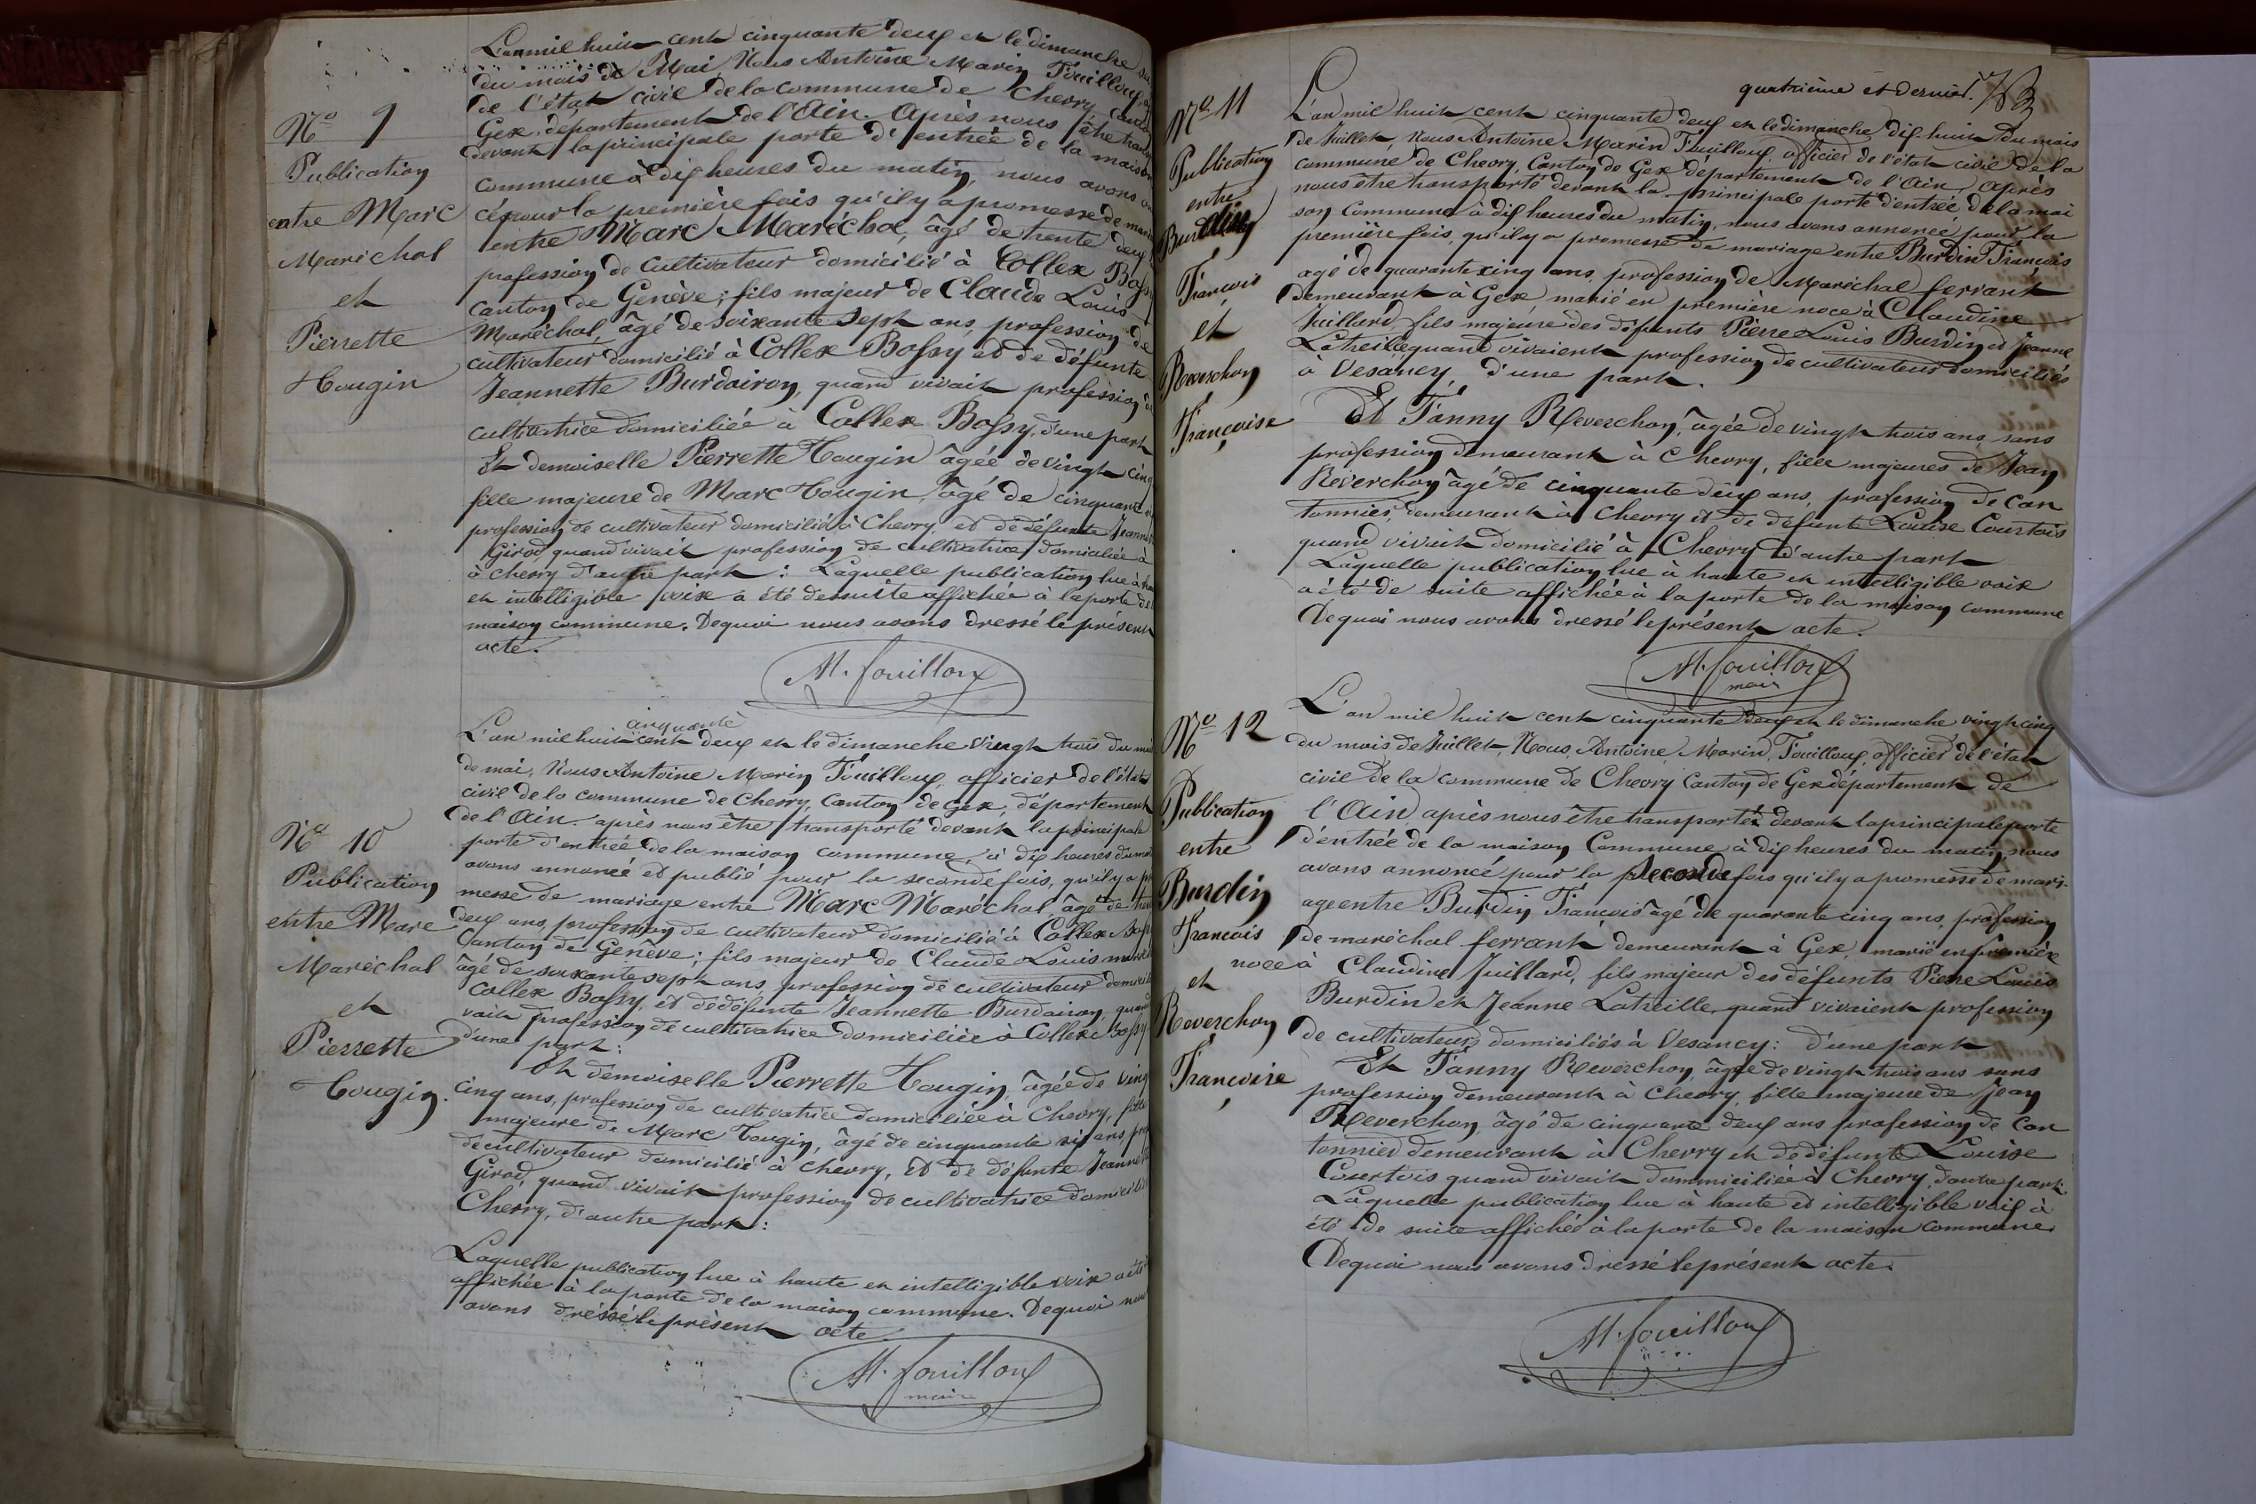 L'an mil huit cent cinquante deux et le dimanche
du mois de Mai, Nous Antoine Marin Fouilloux,
de l'état civil de la commune de Chevry, canton
Gex, département de l'Ain. Après nous être transp
devant la principale porte d'entrée de la maison
commune à dix heures du matin, nous avons
cé pour la première fois qu'il y a promesse de mari
entre Marc Maréchal, âgé de trente deux
profession de cultivateur domicilié à Collex Bossy
canton de Genève; fils majeur de Claude Louis
Maréchal, âgé de soixante sept ans, profession de
cultivateur domicilié à Collex Bossy et de défunte
Jeannette Burdairon, quand vivait profession de
cultivatrice domiciliée à Collex Bossy, d'une part
Et demoiselle Pierrette Tougin âgée de vingt cinq
fille majeure de Marc Tougin, âgé de cinquante
profession de cultivateur domicilié à Chevry, et de défunte Jeannette
Girod quand vivait profession de cultivatrice domiciliée à
à Chevry d'autre part: Laquelle publication lue à
et intelligible voix a été de suite affichée à la porte de
maison commune. De quoi nous avons dressé le présent
acte.
M. fouilloux
No 9
Publication
entre Marc
Maréchal
et
Pierrette
Tougin
L'an mil huit cent cinquante deux et le dimanche vingt trois du
de mai, Nous Antoine Marin Fouilloux, officier de l'état
civil de la commune de Chevry, Canton de Gex, département
de l'Ain. après nous être transporté devant la principale
porte d'entrée de la maison commune, à dix heures du
avons annoncé et publié pour la seconde fois, qu'il y a pro
messe de mariage entre Marc Maréchal âgé de
deux ans, profession de cultivateur domicilié à Collex Bossy
Canton de Genève; fils majeur de Claude Louis
âgé de soixante sept ans, profession de cultivateur domicilié
Collex Bossy, et de défunte Jeannette Burdairon, quand
vait profession de cultivatrice domiciliée à Collex Bossy
d'une part:
Et demoiselle Pierrette Tougin, âgée de vingt
cinq ans, profession de cultivatrice domiciliée à Chevry, fille
majeure de Marc Tougin, âgé de cinquante six ans, prof
de cultivateur domicilié à Chevry, Et de défunte Jeannette
Girod, quand vivait profession de cultivatrice domiciliée
Chevry, d'autre part:
Laquelle publication lue à haute et intelligible voix a été
affichée à la porte de la maison commune. De quoi nous
avons dressé le présent acte.
M. fouilloux
maire
No 10
Publication
entre Marc
Maréchal
et
Pierrette
Tougin.
quatrième et dernier.
L'an mil huit cent cinquante deux et le dimanche dix-huit du mois
de Juillet, Nous Antoine Marin Fouilloux, officier de l'état civil de la
commune de Chevry, Canton de Gex département de l'Ain, après
nous être transporté devant la principale porte d'entrée de la mai
son Commune à dix heures du matin, nous avons annoncé pour la
première fois, qu'il y a promesse de mariage entre Burdin François
agé de quarante cinq ans, profession de Maréchal ferrant
demeurant à Gex, marié en première noce à Claudine
Juillard, fils majeure des défunts Pierre Louis Burdin et Jeanne
Latreille quand vivaient profession de cultivateurs domiciliés
à Vesancy d'une part.
Et Fanny Reverchon, âgée de vingt trois ans, sans
profession demeurant à Chevry, fille majeures de Jean
Reverchon âgé de cinquante deux ans, profession de Can
tonnier, demeurant à Chevry et de défunte Louise Courtois
quand vivait domicilié à Chevry d'autre part
Laquelle publication lue à haute et intelligible voix
a été de suite affichée à la porte de la maison commune
De quoi nous avons dressé le présent acte.
M. fouilloux
maire
No 11
Publication
entre
Burdin
François
et
Reverchon
Françoise
L'an mil huit cent cinquante deux et le dimanche vingt cinq
du mois de Juillet, Nous Antoine Marin Fouilloux, officier de l'état
civil de la commune de Chevry Canton de Gex département de
l'Ain, après nous être transporté devant la principale porte
d'entrée de la maison Commune à dix heures du matin, nous
avons annoncé pour la seconde fois qu'il y a promesse de mari-
age entre Burdin François âgé de quarante cinq ans, profession
de maréchal ferrant demeurant à Gex, marié en première
noce à Claudine Juillard, fils majeur des défunts Pierre Louis
Burdin et Jeanne Latreille, quand vivaient profession
de cultivateurs domiciliés à Vesancy: d'une part
Et Fanny Reverchon, âgée de vingt trois ans sans
profession demeurant à Chevry, fille majeure de Jean
Reverchon, âgé de cinquante deux ans profession de Can
tonnier demeurant à Chevry et de défunte Louise
Courtois quand vivait dommiciliée à Chevry, d'autre part.
Laquelle publication lue à haute et intelligible voix à
été de suite affichée à la porte de la maison commune
De quoi nous avons dressé le présent acte.
M. fouilloux
No 12
Publication
entre
Burdin
Francois
et
Reverchon
Françoise